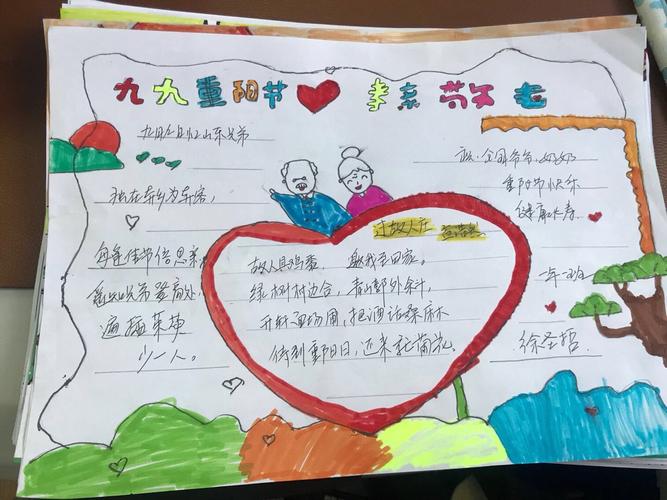 九九重阳节 孝亲敬老
九月九日忆山东兄弟
独在异乡为异客，
每逢佳节倍思亲。
遥知兄弟登高处，
遍插茱萸
少一人。
过故人庄 孟浩然
故人具鸡黍， 邀我至田家。
绿树村边合，青山郭外斜。
开轩面场圃，把酒话桑麻
待到重阳日，还来就菊花。
祝：全国爷爷、奶奶
重阳节快乐
健康长寿
一年一班
徐圣哲